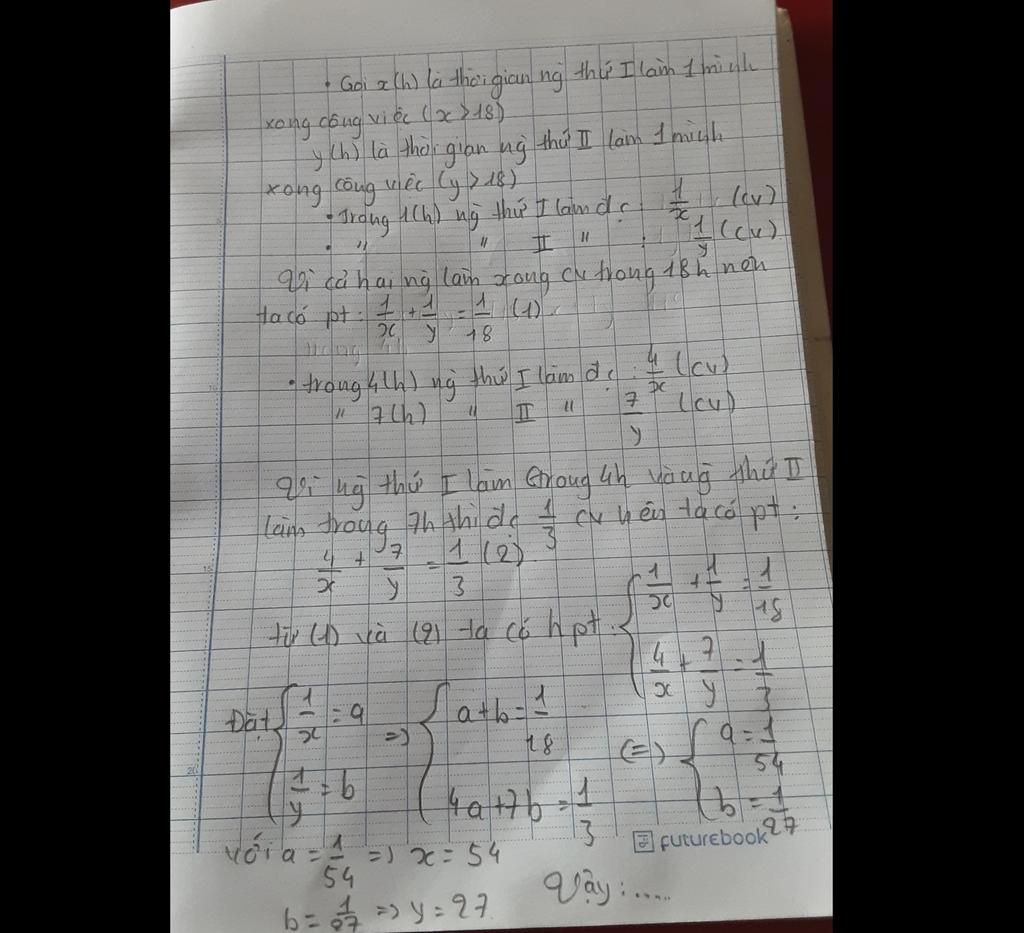 • Gọi x(h) là thời gian ng̀ thứ I làm 1 mình
xong công việc (x > 18)
y(h) là thời gian ng̀ thứ II làm 1 mình
xong công việc (y > 18)
• Trong 1(h) ng̀ thứ I làm đc : 1/x (cv)
• " " II " : 1/y (cv)
Vì cả hai ng̀ làm xong cv trong 18h nên
ta có pt : 1/x + 1/y = 1/18 (1)
• trong 4(h) ng̀ thứ I làm đc : 4/x (cv)
" 7(h) " II " 7/y (cv)
Vì ng̀ thứ I làm trong 4h và ng̀ thứ II
làm trong 7h thì đc 1/3 cv nên ta có pt :
4/x + 7/y = 1/3 (2)
từ (1) và (2) ta có hpt : { 1/x + 1/y = 1/18
4/x + 7/y = 1/3
Đặt { 1/x = a => { a + b = 1/18 (=) { a = 1/54
1/y = b 4a + 7b = 1/3 b = 1/27
futurebook
với a = 1/54 => x = 54
b = 1/27 => y = 27
Vậy : .....